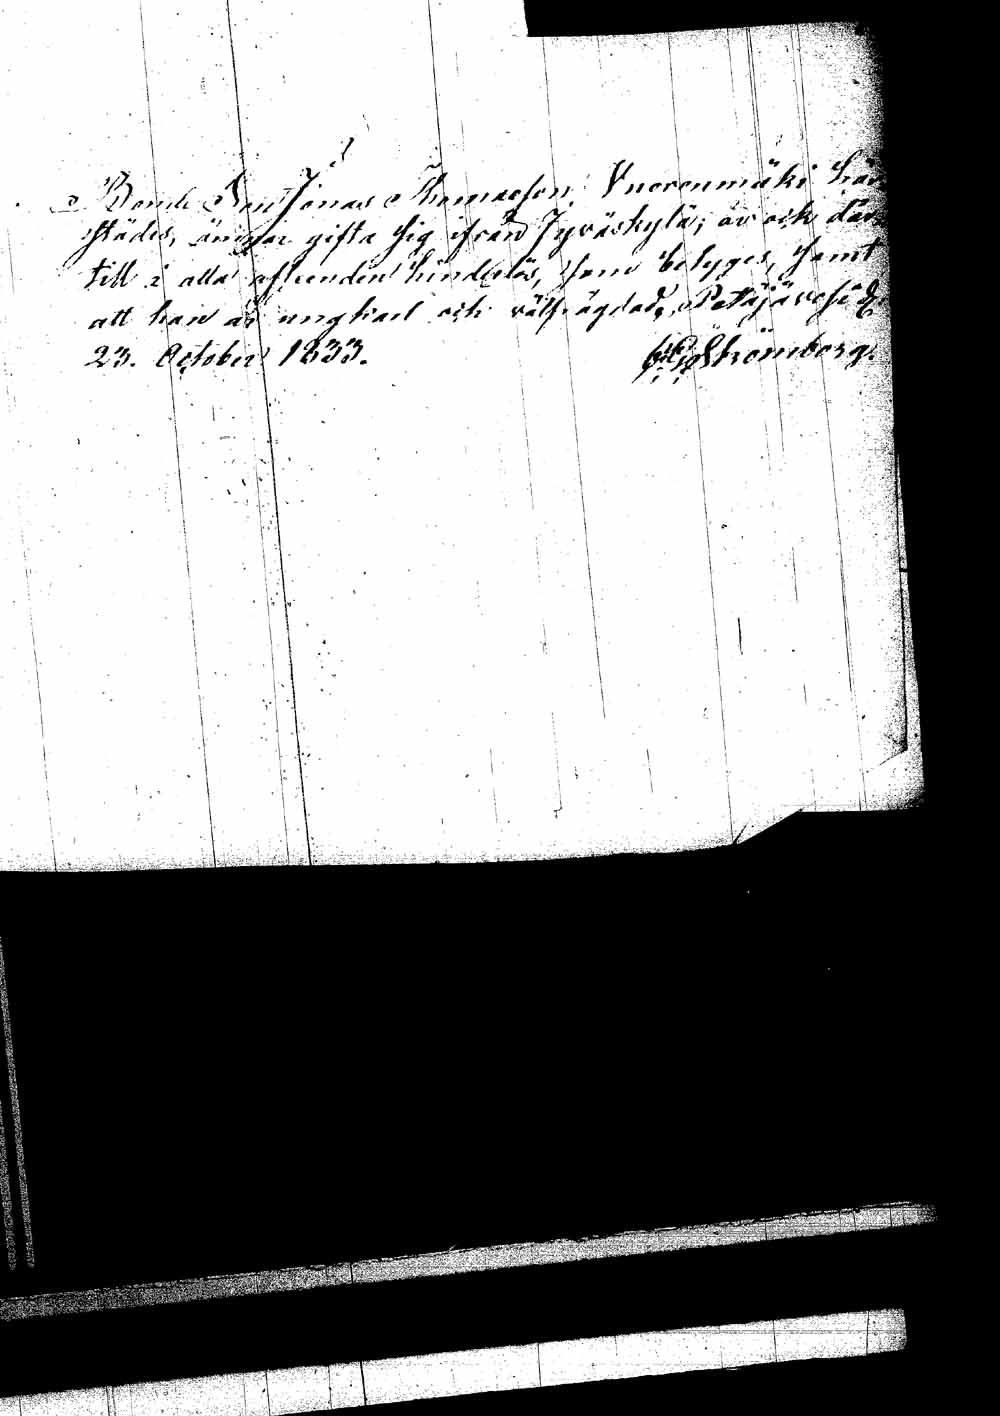 Bonde Son Jonas Thomasson Vuorenmäki här
städes, ämnar gifta sig ifrån Jyväskylä; är och där
till i alla afseenden hinderlös, som betyges, samt
att han är ungkarl och välfrägdad, Petäjävesi d.
23. October 1833. Strömborg.